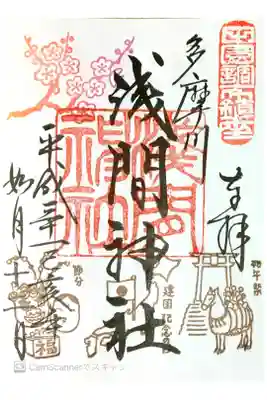 田園調布鎮座
奉拝
多摩川
浅間神社
平成三十一己亥年
如月十一日
初午祭
建国記念の日
節分
福
CamScannerでスキャン